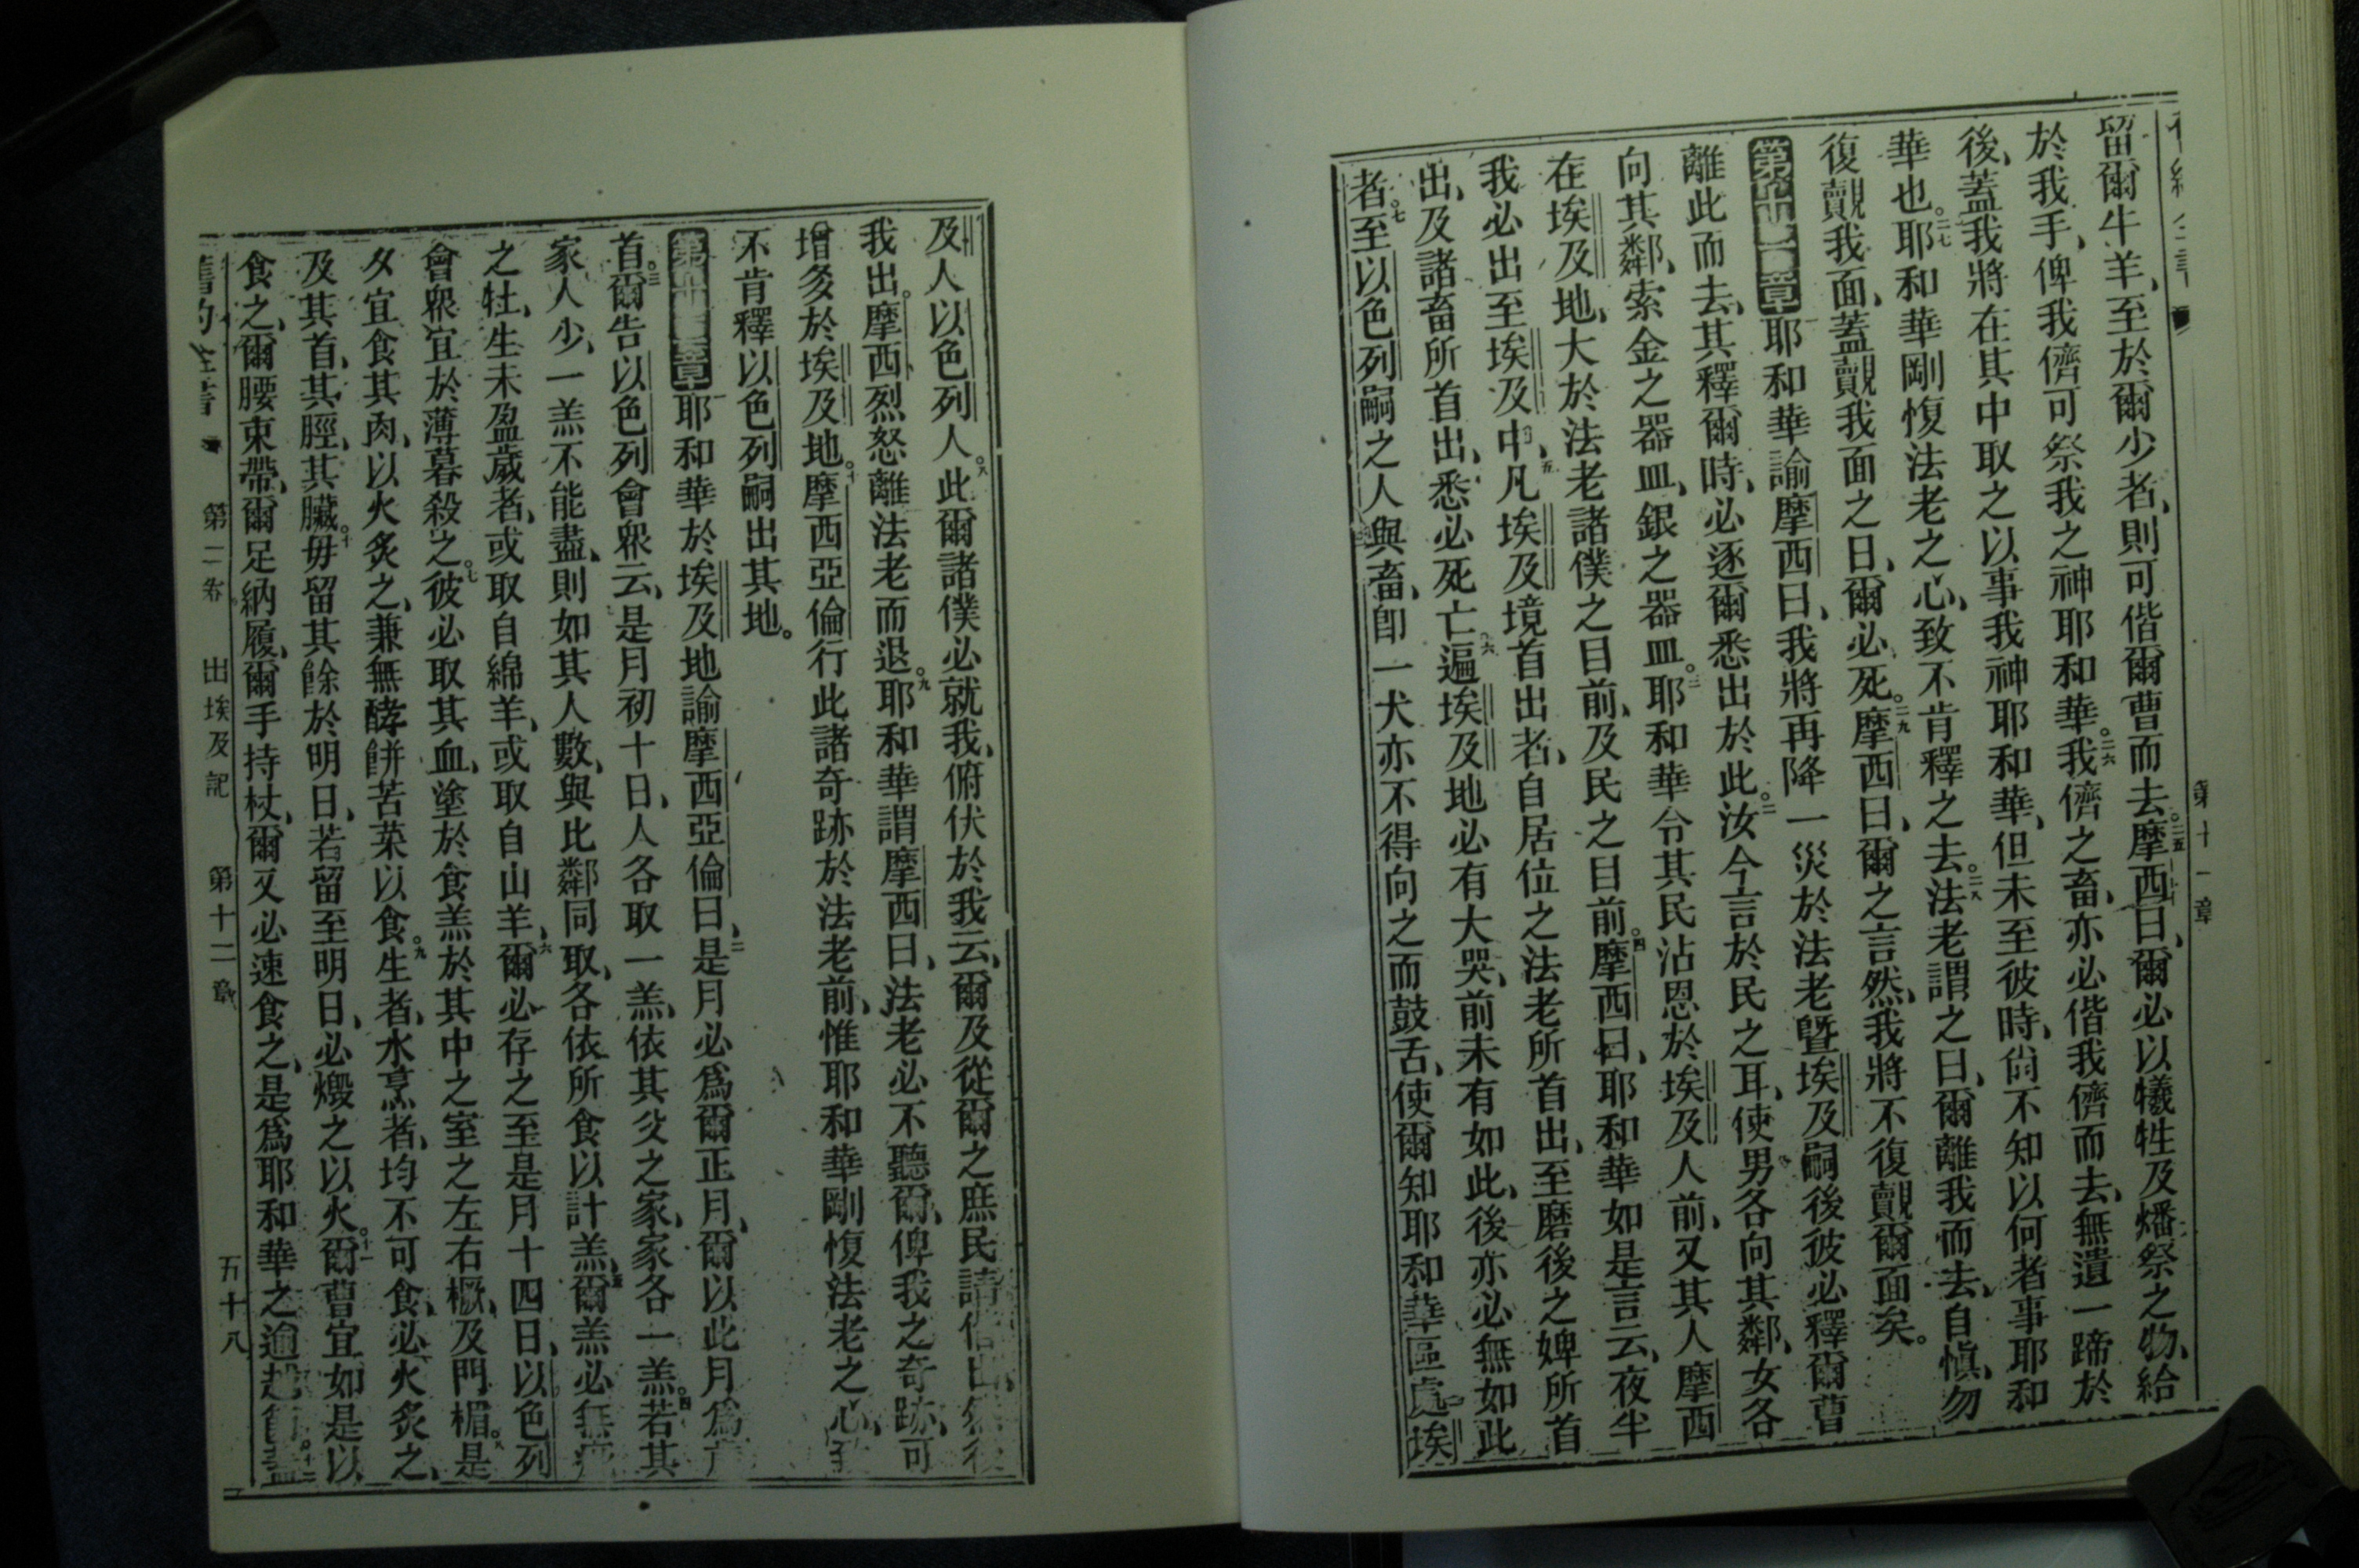 第十一章
留爾牛羊、至於爾少者、則可偕爾曹而去。二五摩西曰、爾必以犧牲及燔祭之物、給
於我手、俾我儕可祭我之神耶和華。二六我儕之畜、亦必偕我儕而去、無遺一蹄於
後、蓋我將在其中取之以事我神耶和華、但未至彼時、尚不知以何者事耶和
華也。二七耶和華剛愎法老之心、致不肯釋之去。二八法老謂之曰、爾離我而去、自慎、勿
復覿我面、蓋覿我面之日、爾必死。二九摩西曰、爾之言然、我將不復覿爾面矣。
第十一章耶和華諭摩西曰、我將再降一災於法老曁埃及、嗣後彼必釋爾曹
離此而去、其釋爾時、必逐爾悉出於此。二汝今言於民之耳、使男各向其鄰、女各
向其鄰、索金之器皿、銀之器皿。三耶和華令其民沾恩於埃及人前、又其人摩西
在埃及地、大於法老諸僕之目前、及民之目前。四摩西曰、耶和華如是言云、夜半
我必出至埃及中、五凡埃及境首出者、自居位之法老所首出、至磨後之婢所首
出、及諸畜所首出、悉必死亡。六遍埃及地必有大哭、前未有如此、後亦必無如此
者。七至以色列嗣之人與畜、卽一犬亦不得向之而鼓舌、使爾知耶和華區處埃
及人以色列人。八此爾諸僕必就我、俯伏於我云、爾及從爾之庶民請偕出、然後
我出。摩西烈怒離法老而退。九耶和華謂摩西曰、法老必不聽爾、俾我之奇跡、可
增多於埃及地。十摩西亞倫行此諸奇跡於法老前、惟耶和華剛愎法老之心、致
不肯釋以色列嗣出其地。
第十二章耶和華於埃及地諭摩西亞倫曰、二是月必爲爾正月、爾以此月爲
首。三爾告以色列會眾云、是月初十日、人各取一羔、依其父之家、家各一羔。四若其
家人少、一羔不能盡、則如其人數、與比鄰同取、各依所食以計羔、五爾羔必無
之牡、生未盈歲者、或取自綿羊、或取自山羊、六爾必存之至是月十四日、以色列
會眾宜於薄暮殺之。七彼必取其血、塗於食羔於其中之室之左右橛、及門楣。八是
夕宜食其肉、以火炙之、兼無酵餅苦菜以食。九生者、水烹者、均不可食、必火炙之、
及其首、其脛、其臟。十毋留其餘於明日、若留至明日、必燬之以火。十一爾曹宜如是以
食之、爾腰束帶、爾足納履、爾手持杖、爾又必速食之、是爲耶和華之逾越節。十二蓋
第二卷 出埃及記 第十二章 五十八